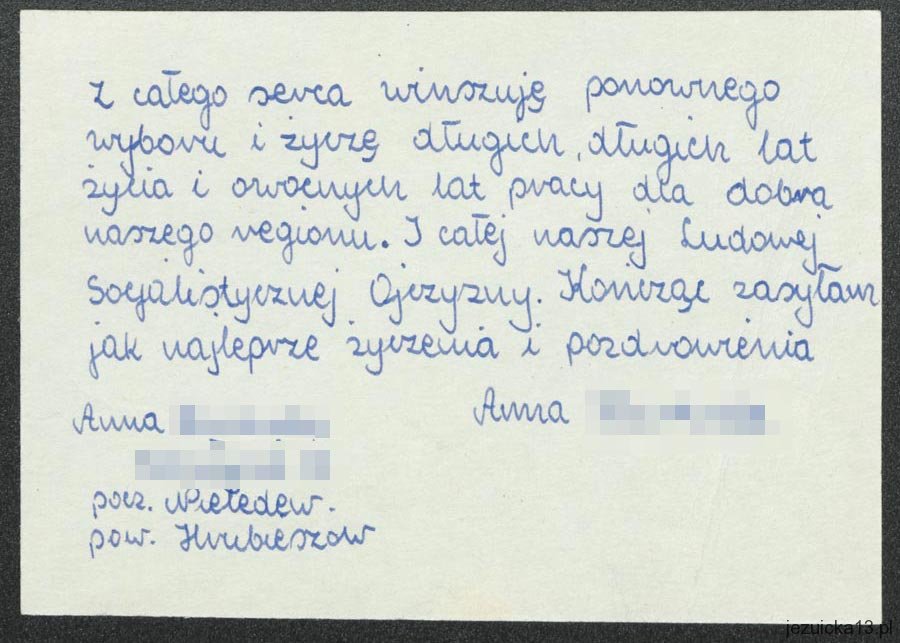 Z całego serca winszuję ponownego
wyboru i życzę długich, długich lat
życia i owocnych lat pracy dla dobra
naszego regionu. I całej naszej Ludowej
Socjalistycznej Ojczyzny. Kończąc zasyłam
jak najlepsze życzenia i pozdrowienia
Anna
Anna
pocz. Nieledew.
pow. Hrubieszow
jezuicka13.pl